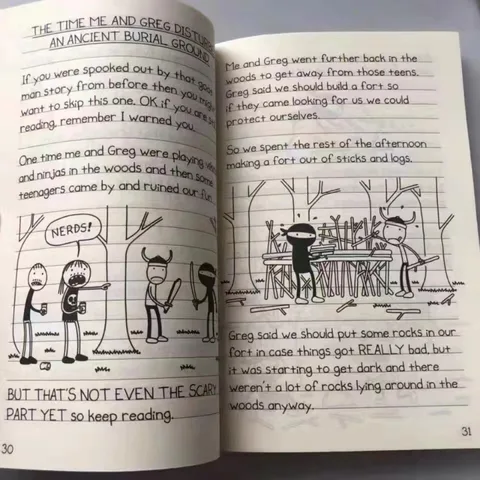 THE TIME ME AND GREG
AN ANCIENT BURIAL GROUND
If you were spooked out by that
man story from before then you
want to skip this one. OK if you are
reading, remember I warned you.
One time me and Greg were playing
and ninjas in the woods and then some
teenagers came by and ruined our
NERDS!
BUT THAT'S NOT EVEN THE SCARY
PART YET so keep reading.
30
Me and Greg went further back in the
woods to get away from those teens.
Greg said we should build a fort so
if they came looking for us we could
protect ourselves.
So we spent the rest of the afternoon
making a fort out of sticks and logs.
Greg said we should put some rocks in our
fort in case things got REALLY bad, but
it was starting to get dark and there
weren't a lot of rocks lying around in the
woods anyway.
31